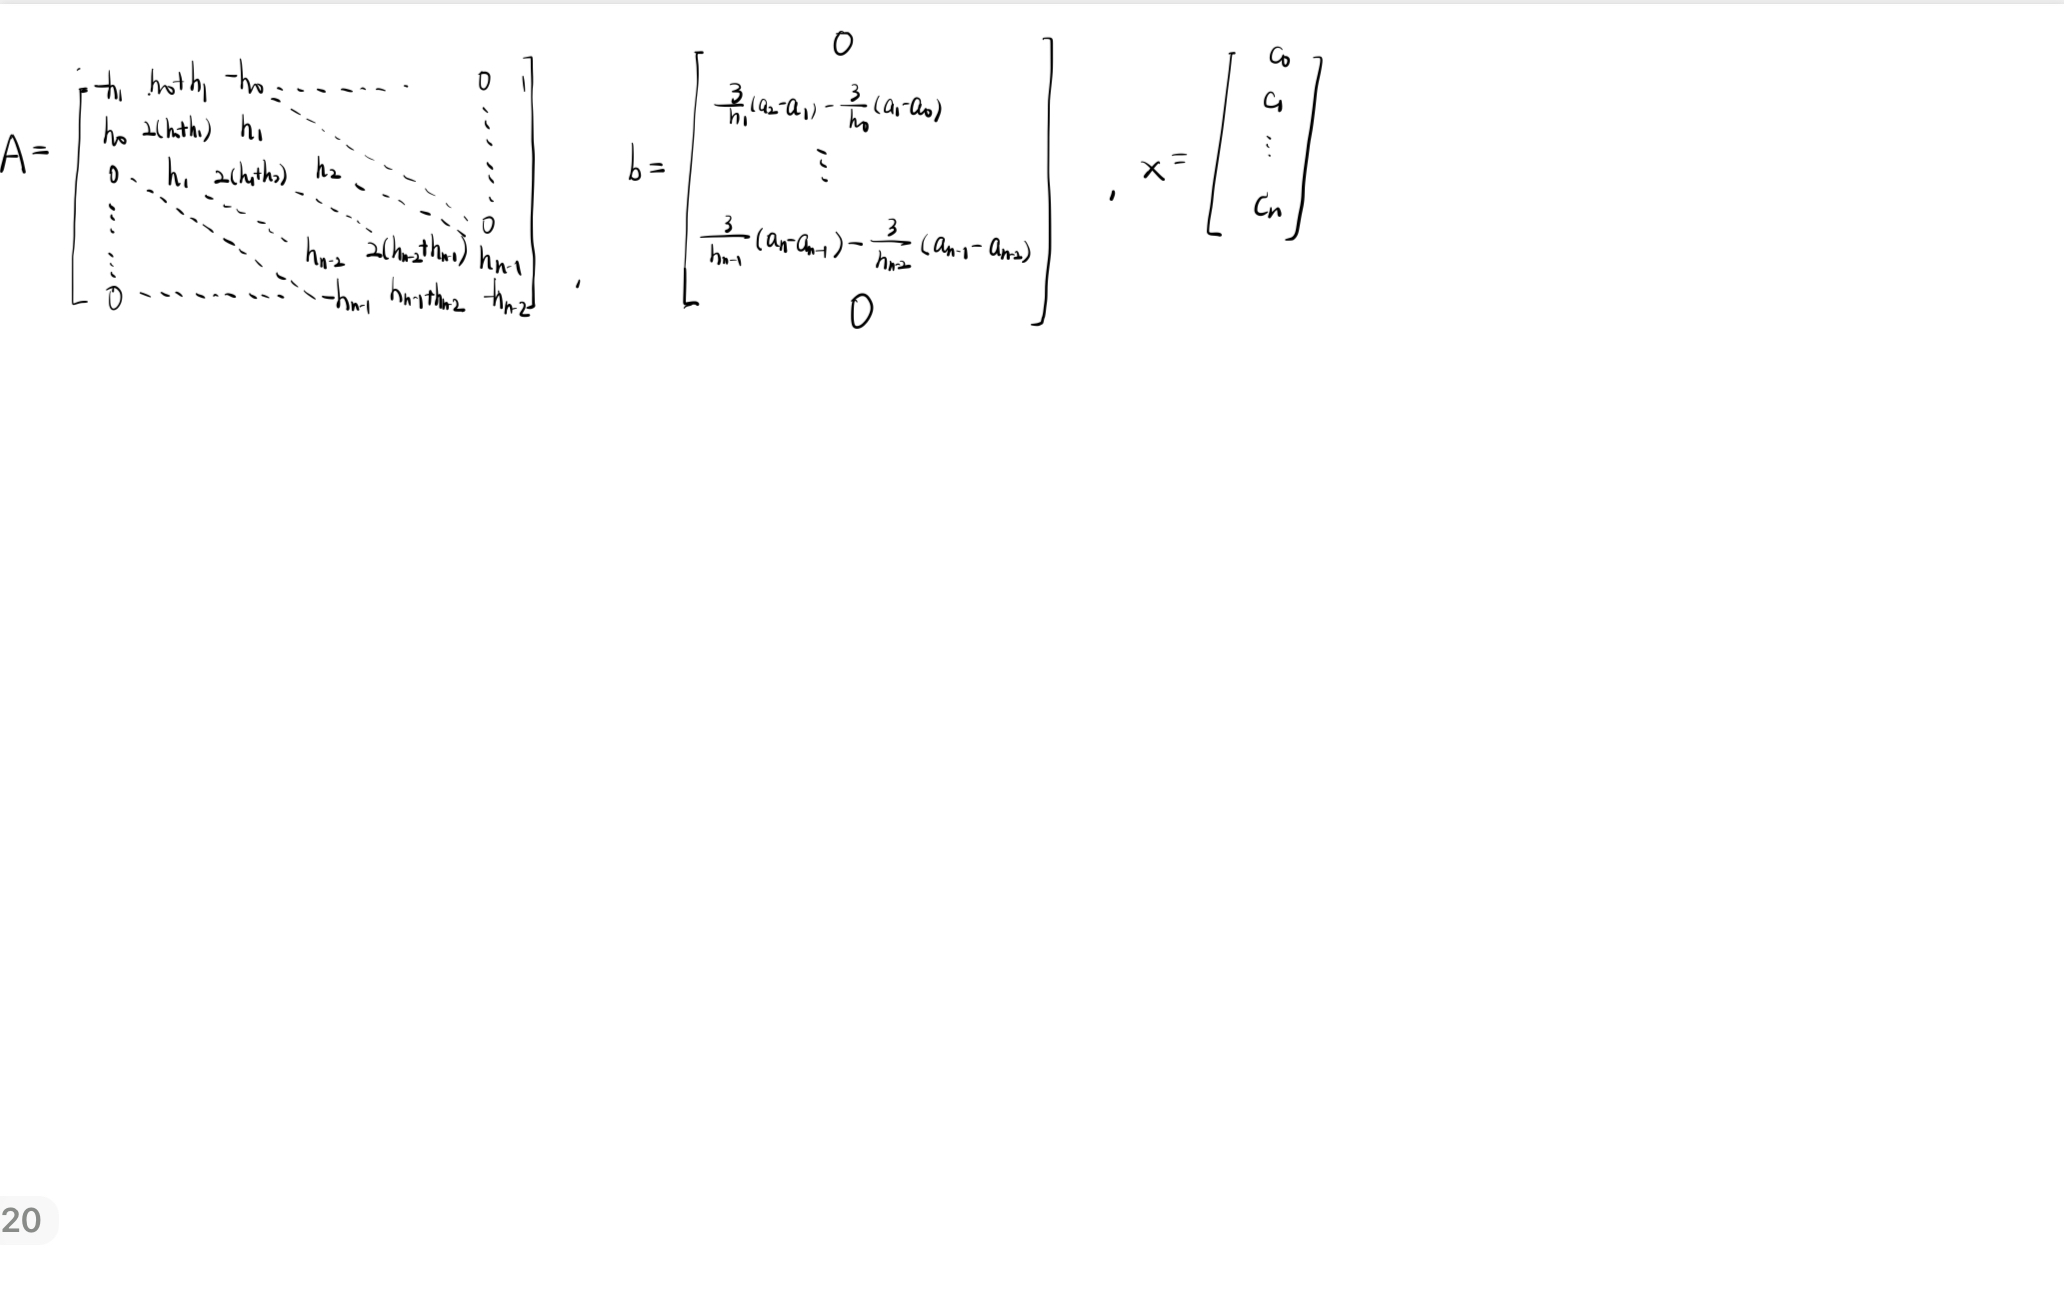 A = [ -h₁ h₀+h₁ -h₀ ------ 0
h₀ 2(h₀+h₁) h₁
0 h₁ 2(h₁+h₂) h₂
⋮ 0
⋮ hₙ₋₂ 2(hₙ₋₂+hₙ₋₁) hₙ₋₁
0 -------- -hₙ₋₁ hₙ₋₁+hₙ₋₂ -hₙ₋₂ ] ,
b = [ 0
3/h₁ (a₂-a₁) - 3/h₀ (a₁-a₀)
⋮
3/hₙ₋₁ (aₙ-aₙ₋₁) - 3/hₙ₋₂ (aₙ₋₁-aₙ₋₂)
0 ] ,
x = [ c₀
c₁
⋮
cₙ ]
20